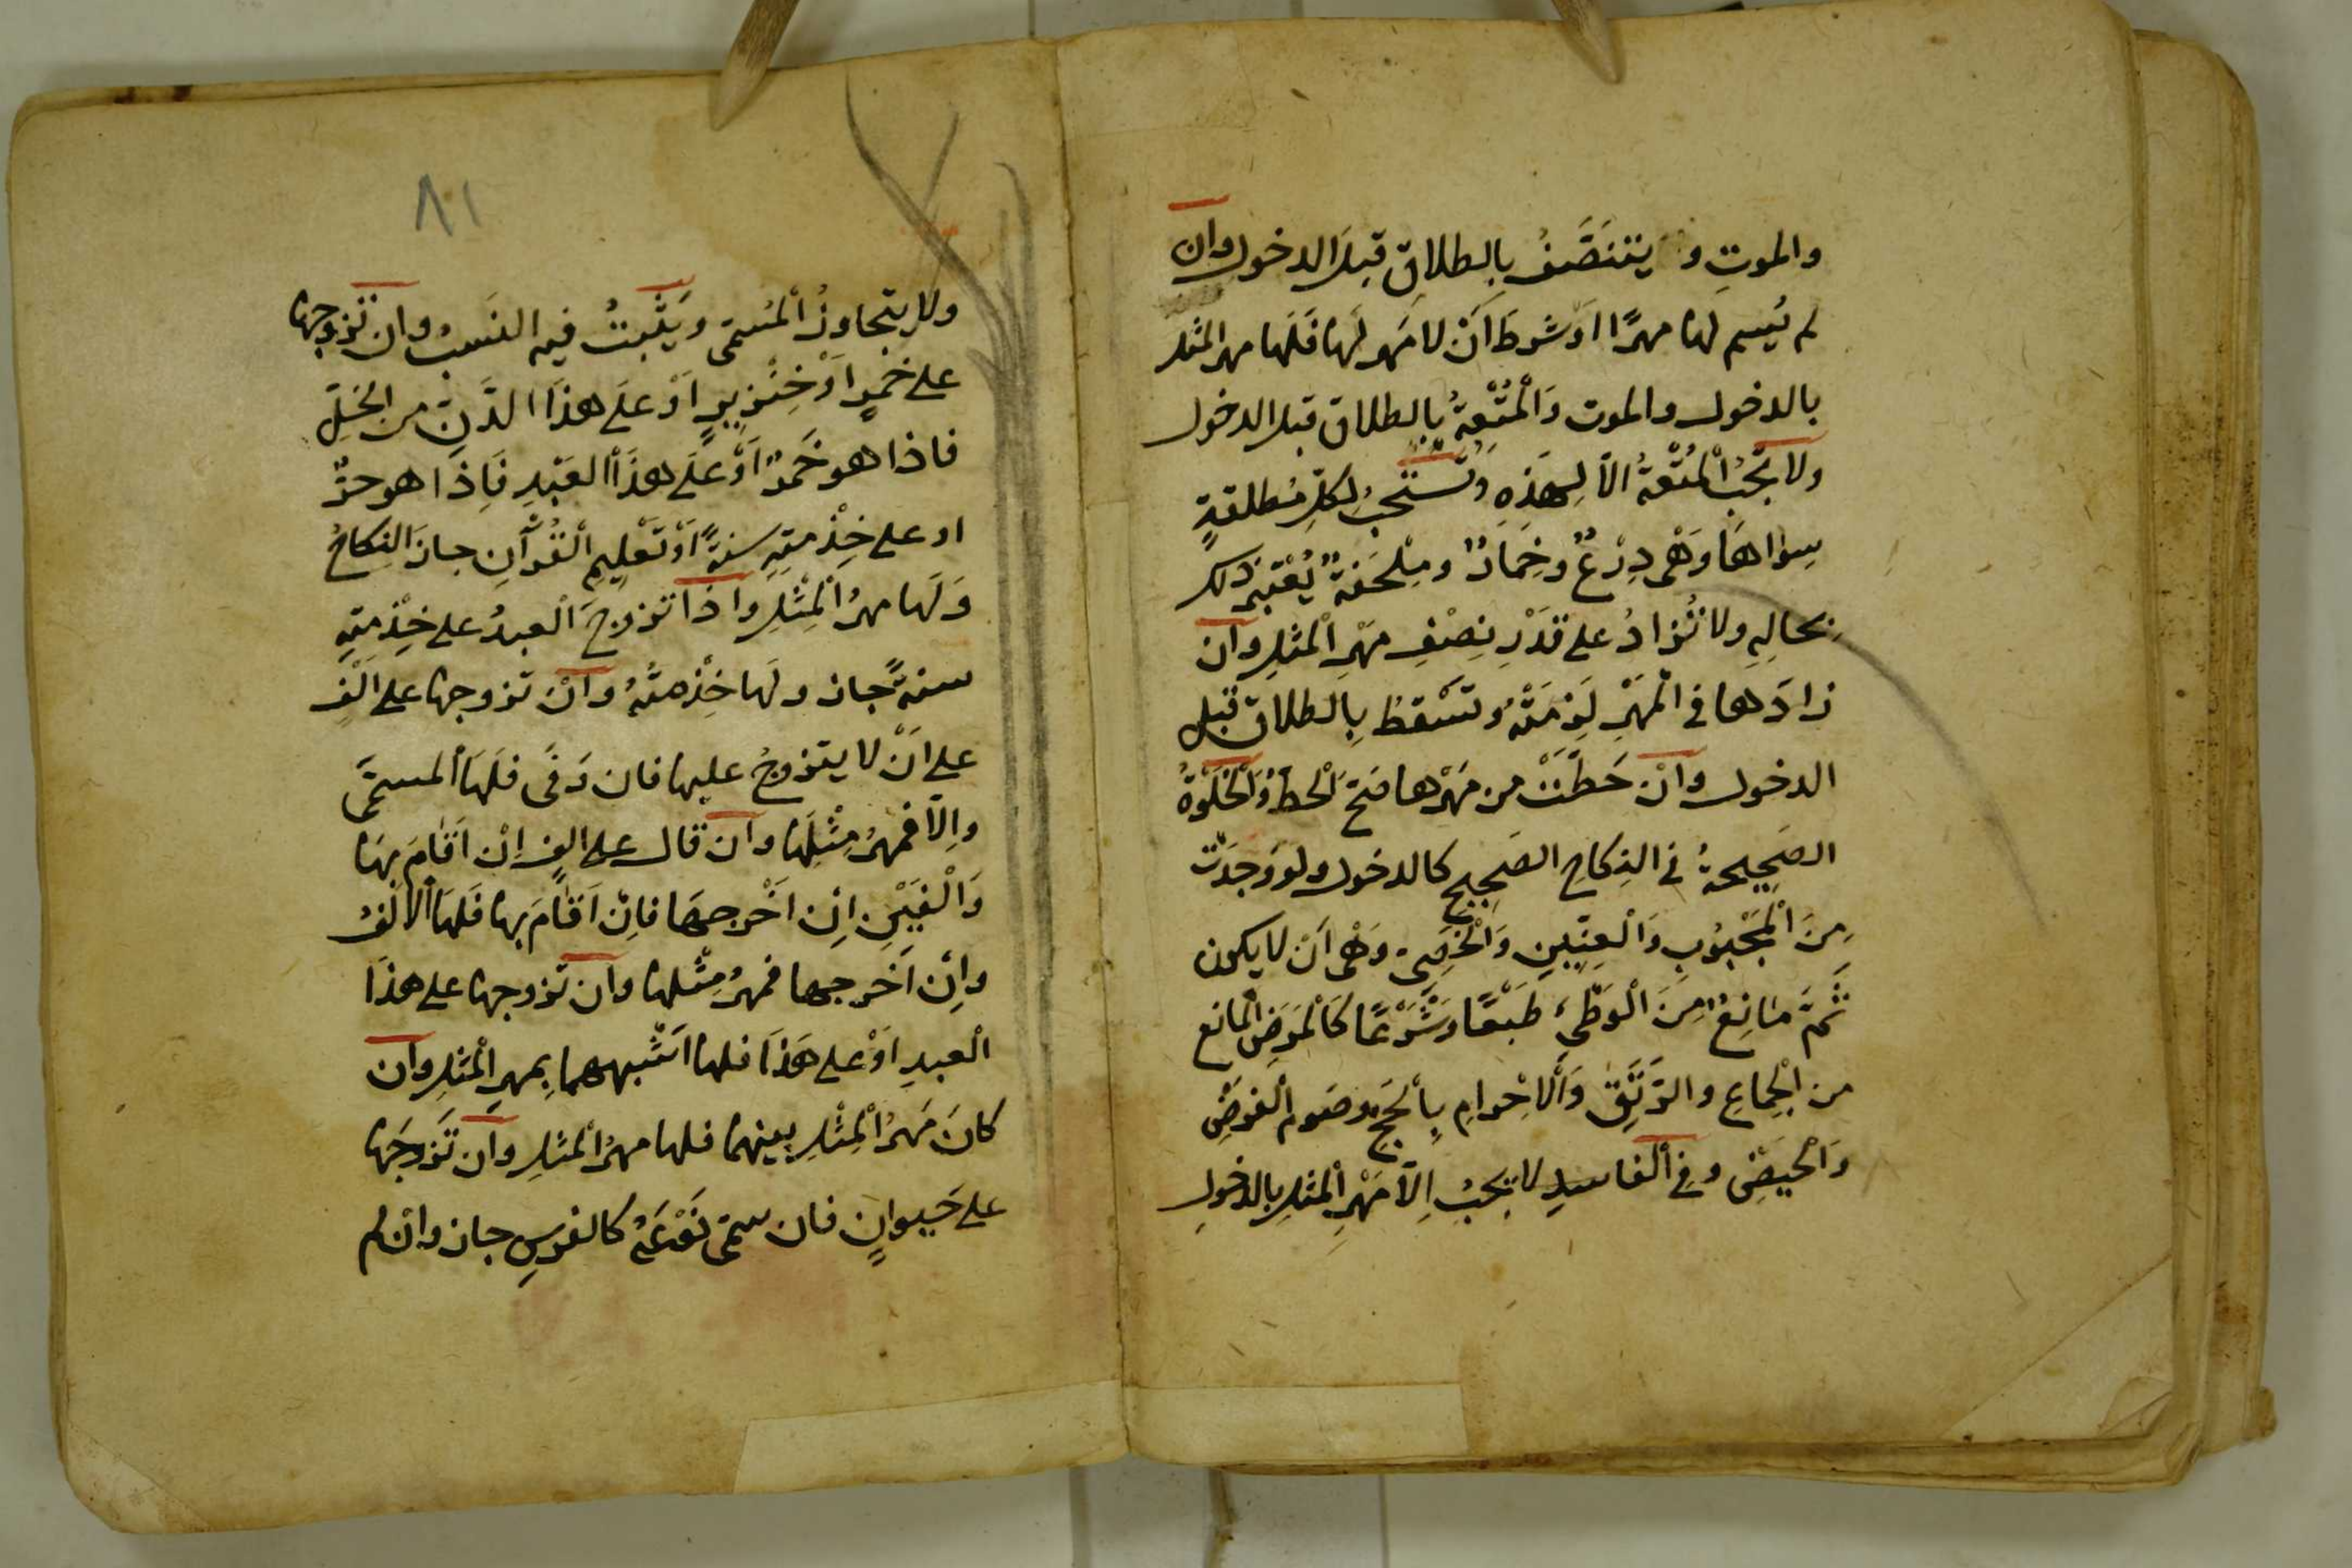 والموتِ و يتنَصَّفُ بِالطلاقِ قبلَ الدخول وان
لم يُسم لها مهرًا اوْ شرطَ اَنْ لا مَهرَ لَها فَلَها مهر المثل
بالدخول والموت وَالْمُتْعةُ بِالطلاق قبل الدخول
ولا تجبُ الْمُتْعةُ الاّ لِهَذِهِ وتُستحبُ لِكلِّ مُطلقةٍ
سِواهَا وَهْىَ دِرْعٌ وخِمَارٌ ومِلْحَفةٌ يُعْتبرُ ذلك
بحالِهِ ولا تُزادُ على قَدْرِ نِصْفِ مهْرِ الْمثلِ وان
زادَها في الْمهْرِ لَزمَتْهُ وتَسْقطُ بِالطلاق قبل
الدخول وانْ حَطَّتْ من مَهْرِها صَحّ الْحطُّ وَالْخَلْوةُ
الصَحِيحةُ في النِكاحِ الصَحِيحِ كالدخول ولو وَجدَتْ
مِنَ الْمَجْبُوبِ وَالْعِنّينِ وَالْخَصِىّ وَهْىَ اَنْ لا يكون
ثَمَّ مَانِعٌ مِنَ الْوَطْىءِ طَبْعًا وشَرْعًا كَالْمَرَضِ الْمانع
من الْجِماعِ والرَتَقِ وَالْاِحْرامِ بِالْحَجِّ وصَوم الْفرضِ
وَالْحَيضِ وفي الْفاسدِ لا يَجبُ اِلاّ مَهْرُ الْمثلِ بالدخولِ
٨١
ولا يتجاوزُ الْمُسمّى ويَثْبتُ فيه النَسبُ وان تزوجها
على خَمرٍ اَوْ خِنْزيرٍ اَوْ علَى هذَا الدَّنِّ من الْخلِّ
فاذا هو خَمرٌ اَوْ علَى هذَا الْعَبْدِ فَاِذا هو حرٌّ
او على خِدْمتِهِ سنةً اَوْ تَعْلِيمِ الْقُرْآنِ جازَ النِكاحُ
وَلَها مهرُ الْمِثْلِ واذا تزوجَ الْعبدُ على خِدْمتِهِ
سنةً جاز ولَها خِدْمتُهُ وانْ تزوجها على الْفٍ
على انْ لا يتزوجَ عليها فان وَفَى فلَها الْمسمَّى
واِلاّ فمهرُ مِثْلِها وان قال على الفٍ اِن اَقامَ بِها
وَالْفَيْنِ اِن اَخْرجهَا فاِنْ اَقَامَ بها فَلهَا الْالْفُ
واِنْ اَخرجها فمهرُ مِثْلها وان تزوجها على هذَا
الْعبدِ اَوْ على هَذَا فلها اَشْبههما بِمهرِ الْمثلِ وان
كانَ مَهرُ الْمِثْلِ بينهما فلها مهرُ الْمثلِ وان تَزَوجَها
على حَيوانٍ فان سمّى نَوْعَهُ كالفرسِ جاز وانْ لم